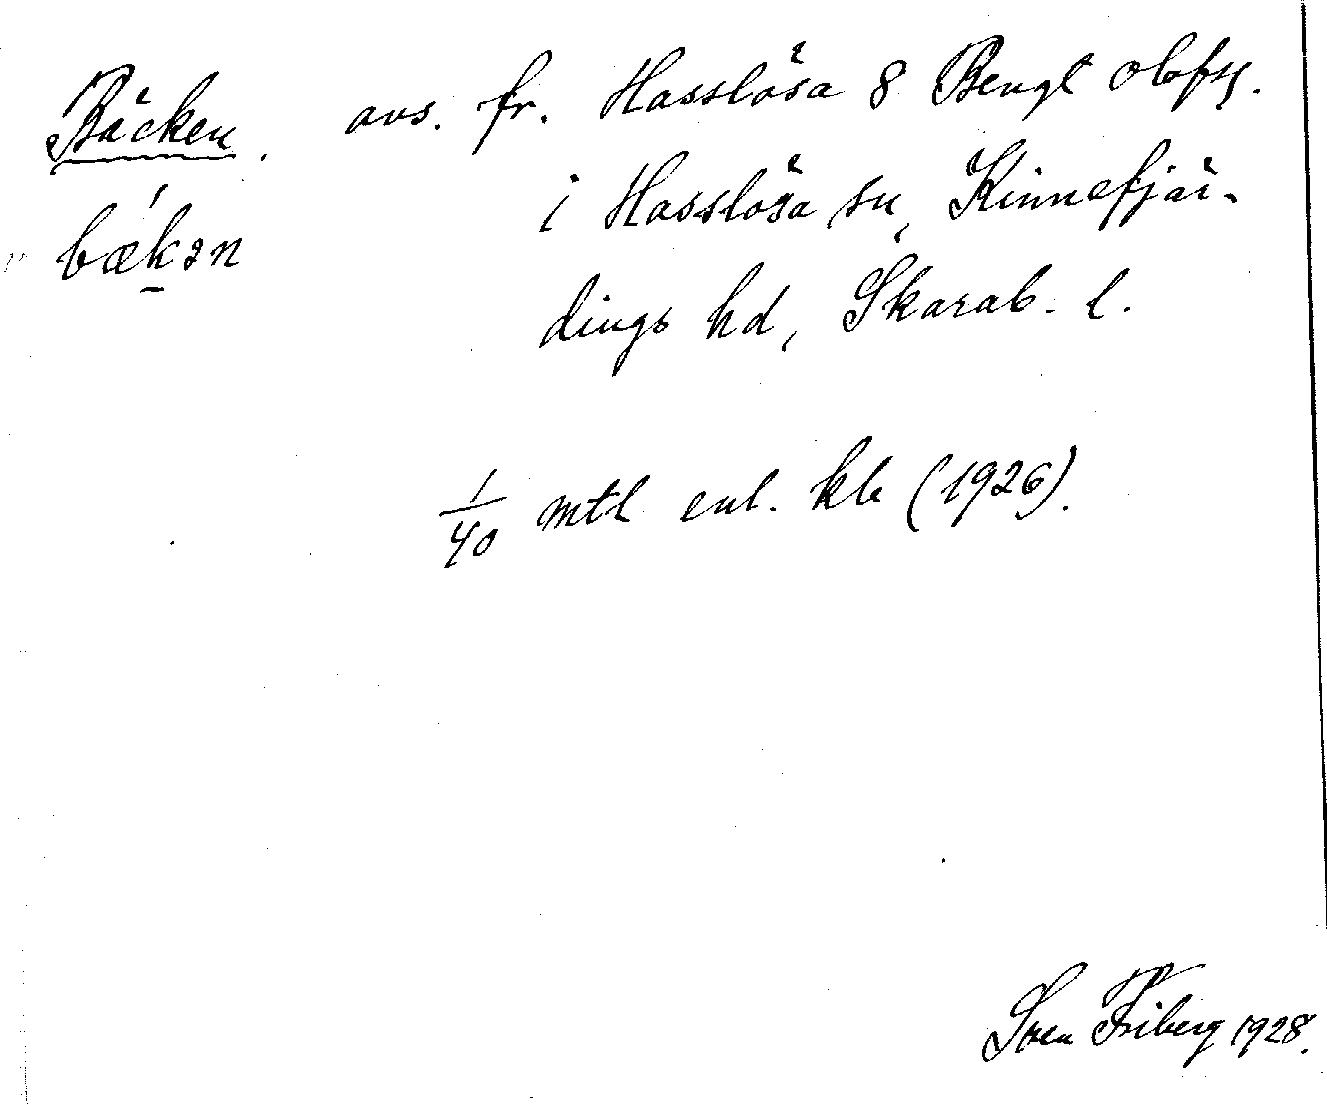 Bäcken. avs. fr. Hasslösa 8 Bengt Olofsg.
i Hasslösa sn, Kinnefjär-
bækən
dings hd, Skarab. l.
1/40 mtl enl. kb (1926).
Sven Friberg 1928.